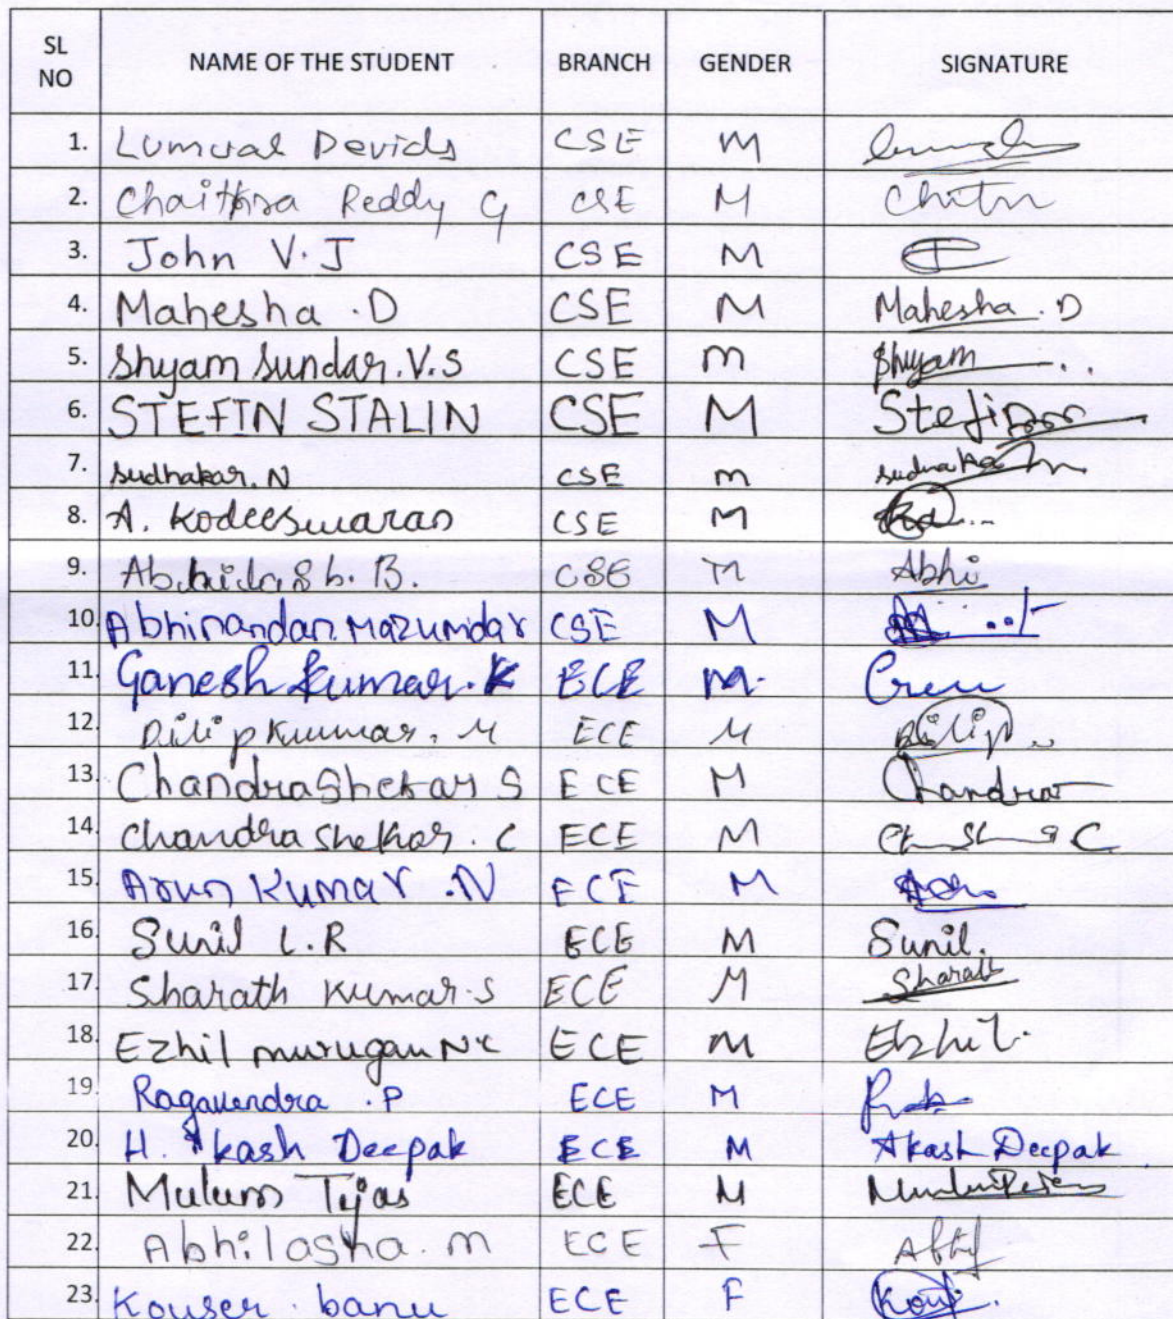 SL NO NAME OF THE STUDENT BRANCH GENDER SIGNATURE
1. Lumural Devids CSE M
2. Chaithra Reddy G CSE M Chitra
3. John V. J CSE M
4. Mahesha . D CSE M Mahesha . D
5. Shyam Sundar. V.S CSE M Shyam
6. STEFIN STALIN CSE M Stefin
7. Sudhakar. N CSE M Sudhaka
8. A. Kodeeswaran CSE M
9. Abhilash. B. CSE M Abhi
10. Abhinandan Mazumdar CSE M
11. Ganesh Kumar. K ECE M.
12. Dilip Kuumar. M ECE M Dilip
13. Chandrashekar S ECE M Chandra
14. Chandra Shekar. C ECE M
15. Arun Kumar .N ECE M
16. Sunil L.R ECE M Sunil.
17. Sharath Kumar.S ECE M Sharath
18. Ezhil murugan N ECE M Ezhil.
19. Ragavendra . P ECE M
20. H. Akash Deepak ECE M Akash Deepak
21. Tejas ECE M
22. Abhilasha. M ECE F
23. Kouser . banu ECE F